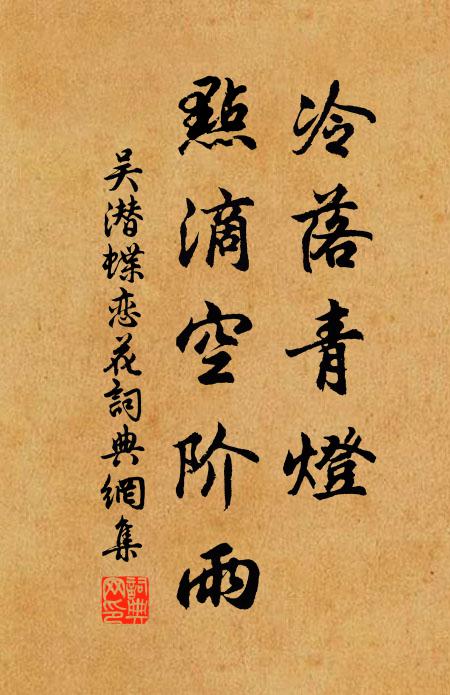 冷落青燈
點滴空阶雨
吴潜蝶恋花詞典網集
詞典网印